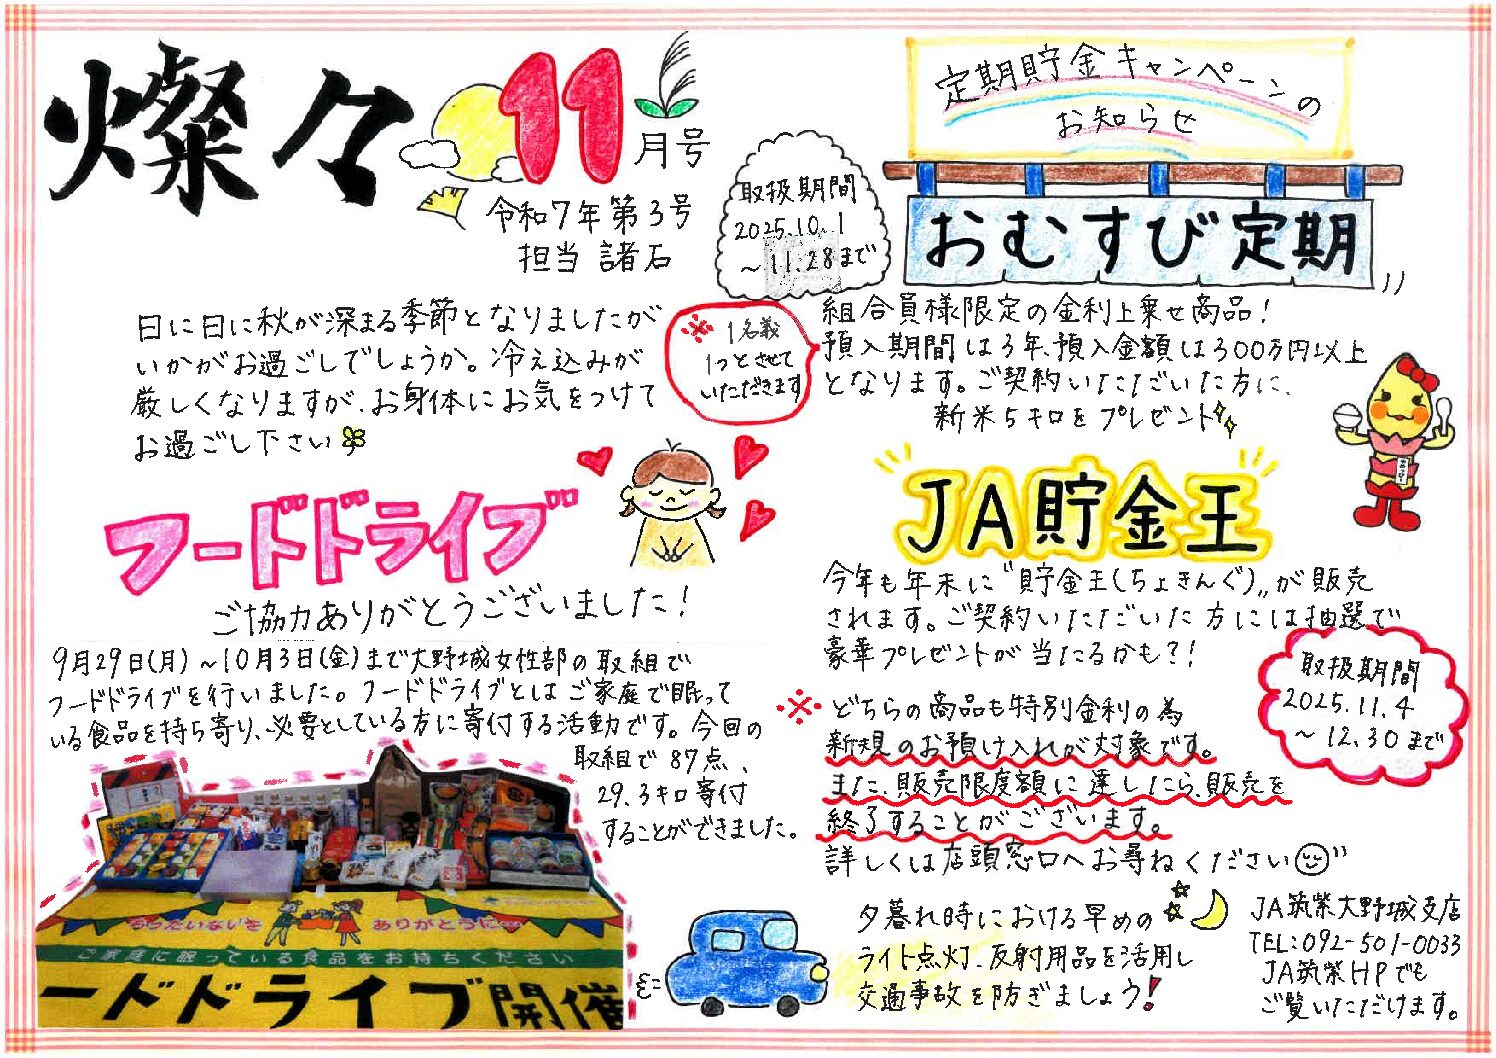 燦々
11月号
令和7年第3号
担当 諸石
日に日に秋が深まる季節となりましたが
いかがお過ごしでしょうか。冷え込みが
厳しくなりますが、お身体にお気をつけて
お過ごし下さい
フードドライブ
ご協力ありがとうございました!
9月29日(月)～10月3日(金)まで大野城女性部の取組で
フードドライブを行いました。フードドライブとはご家庭で眠って
いる食品を持ち寄り、必要としている方に寄付する活動です。今回の
取組で87点、
29.3キロ寄付
することができました。
もったいないを
ありがとうに…
ご家庭に眠っている食品をお持ちください
ードドライブ開催
定期貯金キャンペーンの
お知らせ
おむすび定期
取扱期間
2025.10.1
～11.28まで
組合員様限定の金利上乗せ商品!
預入期間は3年、預入金額は300万円以上
となります。ご契約いただいた方に、
新米5キロをプレゼント
※1名義
1つとさせて
いただきます
JA貯金王
今年も年末に“貯金王(ちょきんぐ)„が販売
されます。ご契約いただいた方には抽選で
豪華プレゼントが当たるかも?!
取扱期間
2025.11.4
～12.30まで
※どちらの商品も特別金利の為
新規のお預け入れが対象です。
また、販売限度額に達したら、販売を
終了することがございます。
詳しくは店頭窓口へお尋ねください
夕暮れ時における早めの
ライト点灯、反射用品を活用し
交通事故を防ぎましょう!
JA筑紫大野城支店
TEL:092-501-0033
JA筑紫HPでも
ご覧いただけます。